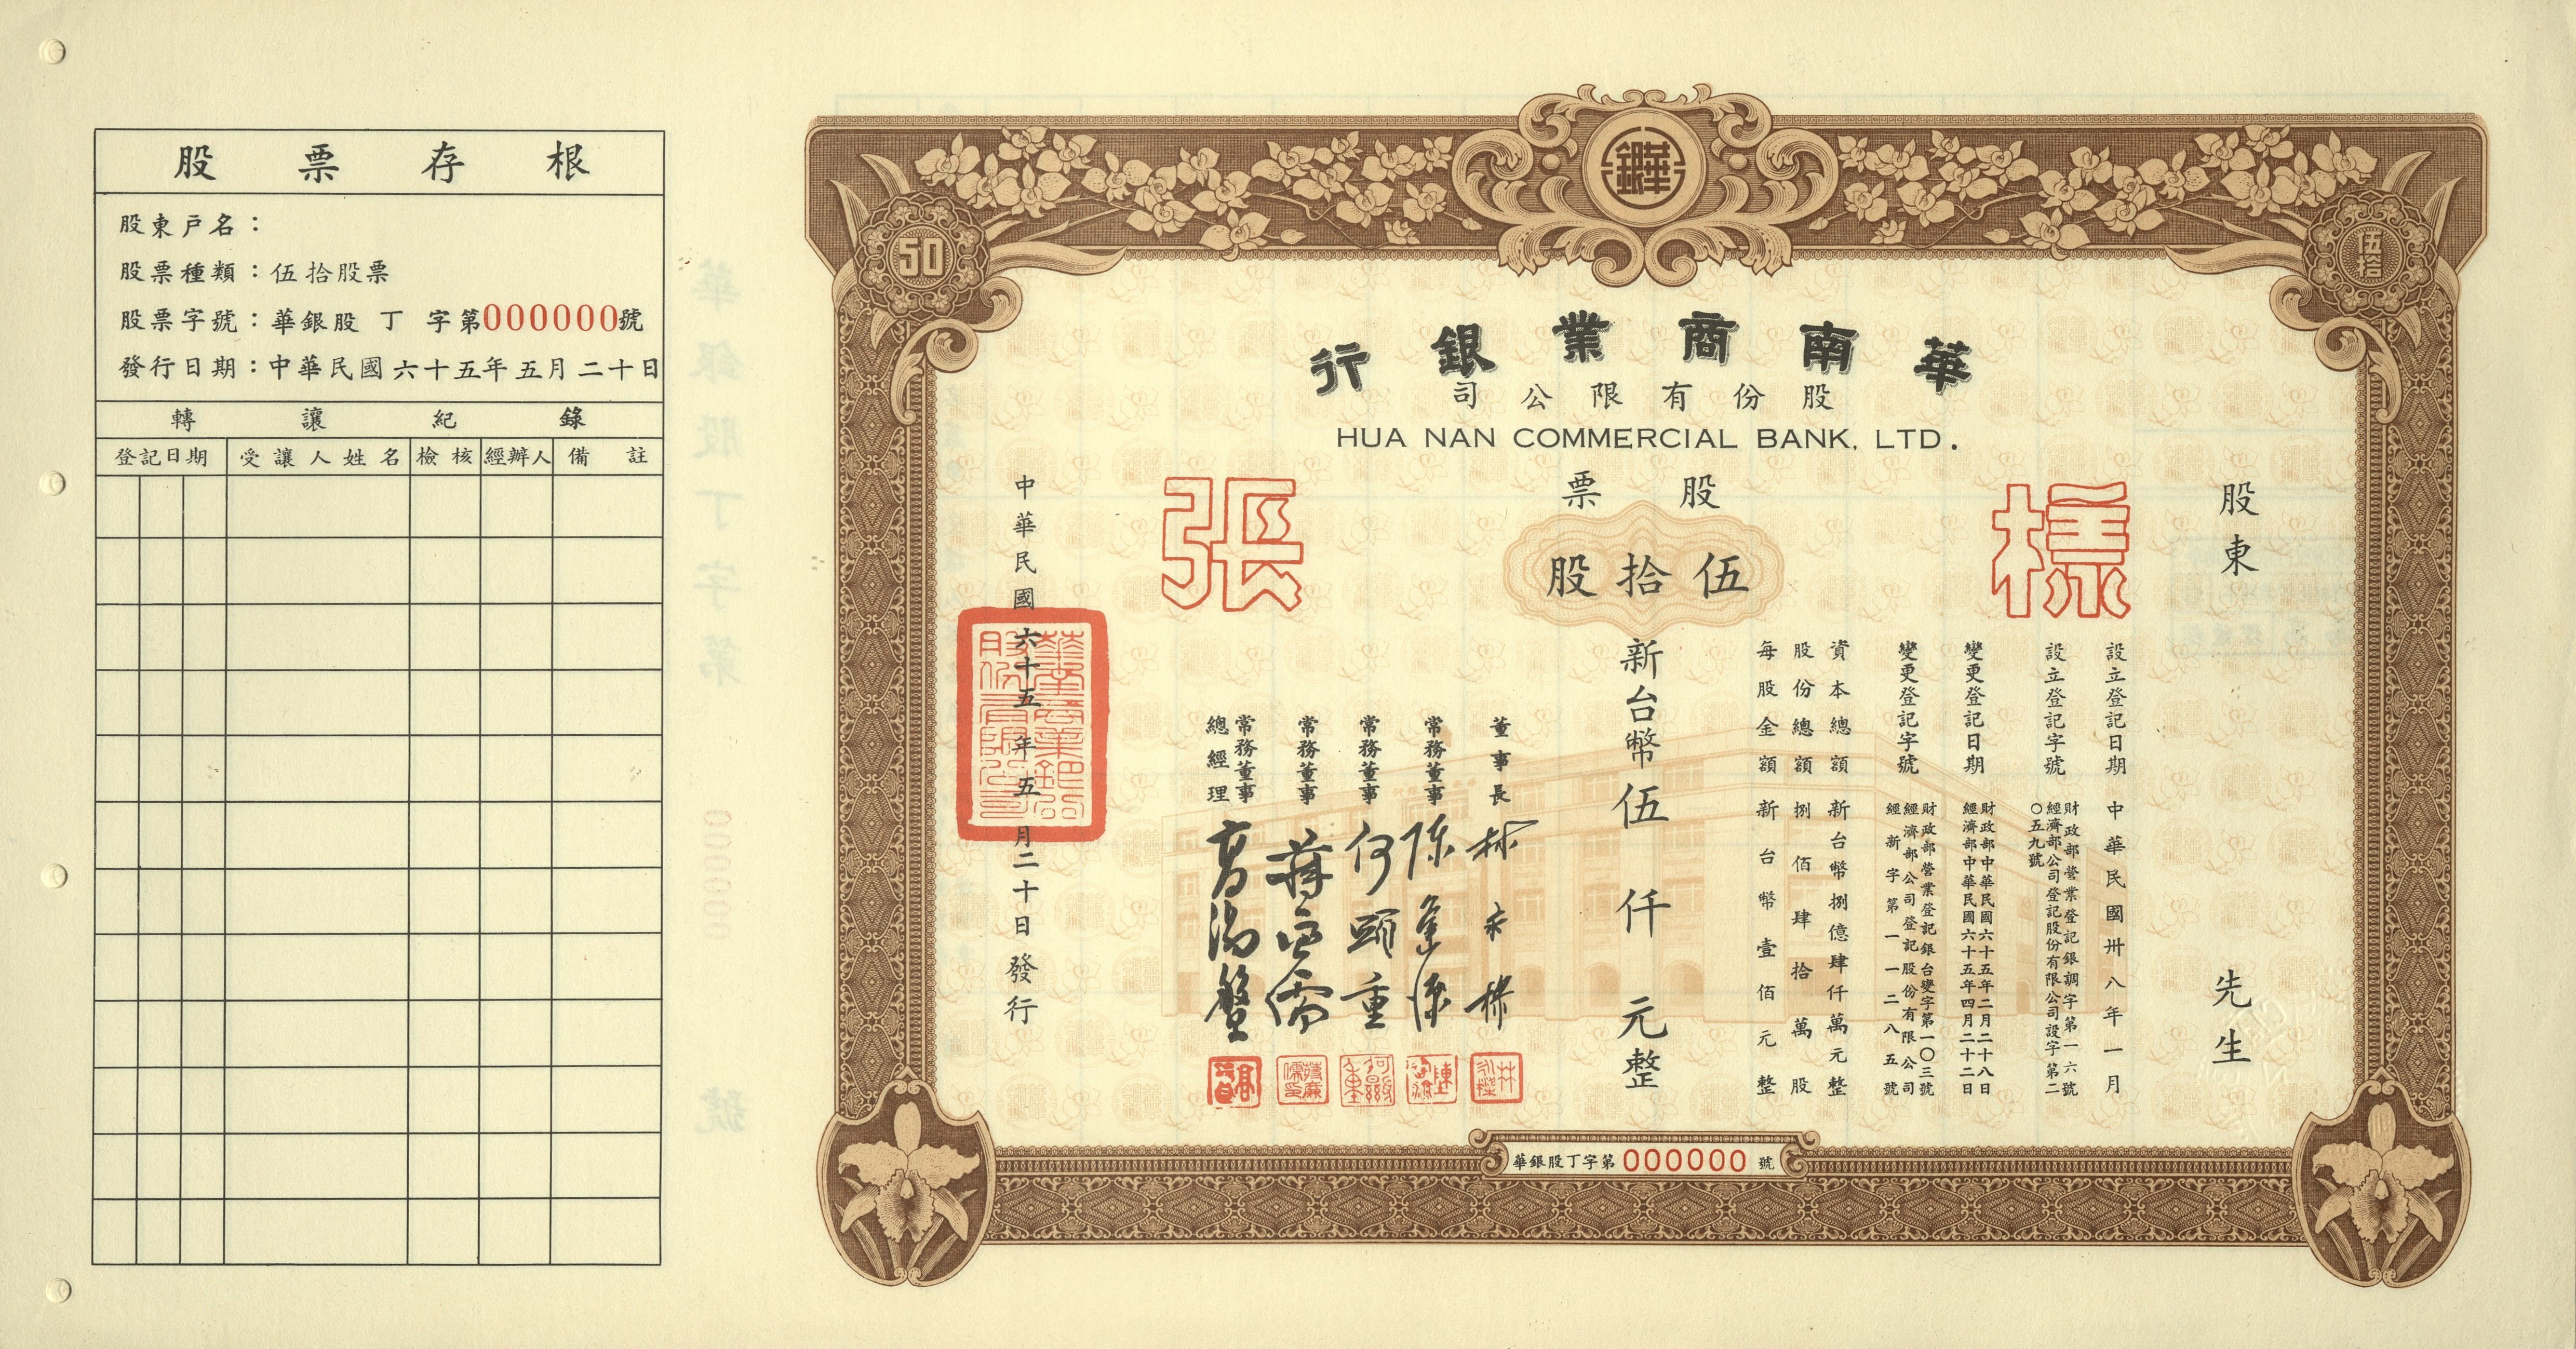 股票存根
股東戶名：
股票種類：伍拾股票
股票字號：華銀股 丁 字第000000號
發行日期：中華民國六十五年五月二十日
轉讓紀錄
登記日期 受讓人姓名 檢核 經辦人 備註
50
伍拾
華銀
華南商業銀行
股份有限公司
HUA NAN COMMERCIAL BANK, LTD.
股票
樣張
伍拾股
股東 先生
設立登記日期 中華民國卅八年一月
設立登記字號 財政部營業登記銀調字第一六號
經濟部公司登記股份有限公司設字第二〇五九號
變更登記日期 財政部中華民國六十五年二月二十八日
經濟部中華民國六十五年四月二十二日
變更登記字號 財政部營業登記銀台變字第一〇三號
經濟部公司登記股份有限公司
經新字第一一二八五號
資本總額 新台幣捌億肆仟萬元整
股份總額 捌佰肆拾萬股
每股金額 新台幣壹佰元整
新台幣伍仟元整
董事長 林永樑
常務董事
常務董事 何顯重
常務董事
常務董事
總經理
中華民國六十五年五月二十日發行
華銀股丁字第000000號